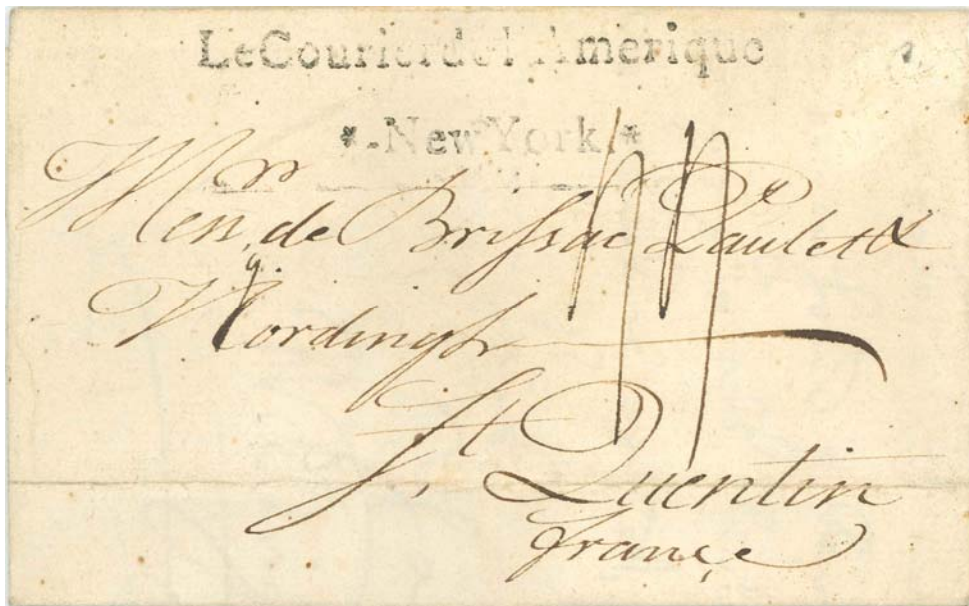 Le Courier de l'Amerique
*. New York. *
Mess.rs de Brissac Paulet &
St Quentin
france